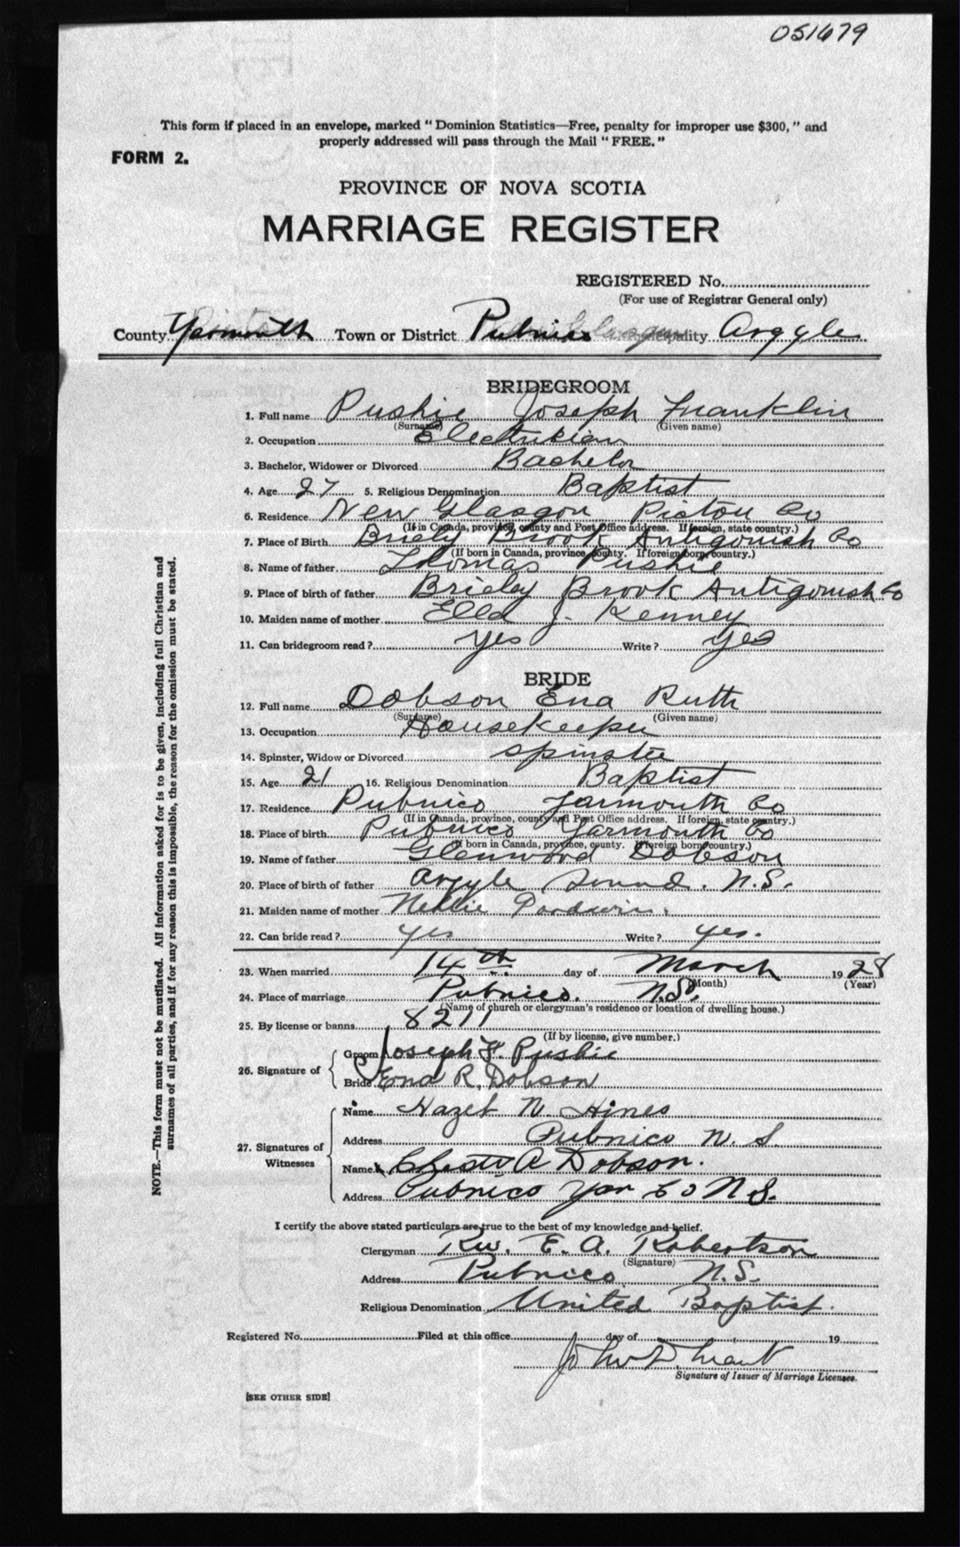 051679
This form if placed in an envelope, marked "Dominion Statistics—Free, penalty for improper use $300," and
properly addressed will pass through the Mail "FREE."
FORM 2.
PROVINCE OF NOVA SCOTIA
MARRIAGE REGISTER
REGISTERED No.
(For use of Registrar General only)
County Yarmouth Town or District Pubnico Municipality Argyle
BRIDEGROOM
1. Full name Pushie Joseph Franklin
(Surname) (Given name)
2. Occupation Electrician
3. Bachelor, Widower or Divorced Bachelor
4. Age 27 5. Religious Denomination Baptist
6. Residence New Glasgow Pictou Co
(If in Canada, province, county and Post Office address. If foreign, state country.)
7. Place of Birth Briely Brook Antigonish Co
(If born in Canada, province, county. If foreign born, country.)
8. Name of father Thomas Pushie
9. Place of birth of father Brieley Brook Antigonish Co
10. Maiden name of mother Ella J. Kenney
11. Can bridegroom read? Yes Write? Yes
BRIDE
12. Full name Dobson Ena Ruth
(Surname) (Given name)
13. Occupation Housekeeper
14. Spinster, Widow or Divorced Spinster
15. Age 21 16. Religious Denomination Baptist
17. Residence Pubnico Yarmouth Co
(If in Canada, province, county and Post Office address. If foreign, state country.)
18. Place of birth Pubnico Yarmouth Co
(If born in Canada, province, county. If foreign born, country.)
19. Name of father Glenwood Dobson
20. Place of birth of father Argyle Sound. N.S.
21. Maiden name of mother Nellie Goodwin.
22. Can bride read? yes Write? yes.
23. When married 14th day of March 1928
(Month) (Year)
24. Place of marriage Pubnico. N.S.
(Name of church or clergyman's residence or location of dwelling house.)
25. By license or banns 8211
(If by license, give number.)
26. Signature of
Groom Joseph F. Pushie
Bride Ena R. Dobson
27. Signatures of Witnesses
Name Hazel N. Hines
Address Pubnico N. S
Name Chester A Dobson.
Address Pubnico Yar Co N.S.
I certify the above stated particulars are true to the best of my knowledge and belief.
Clergyman Rev. E. A. Robertson
(Signature)
Address Pubnico N.S.
Religious Denomination United Baptist.
Registered No. Filed at this office day of 19
John D. Grant
Signature of Issuer of Marriage Licenses.
[SEE OTHER SIDE]
NOTE.—This form must not be mutilated. All information asked for is to be given, including full Christian and
surnames of all parties, and if for any reason this is impossible, the reason for the omission must be stated.